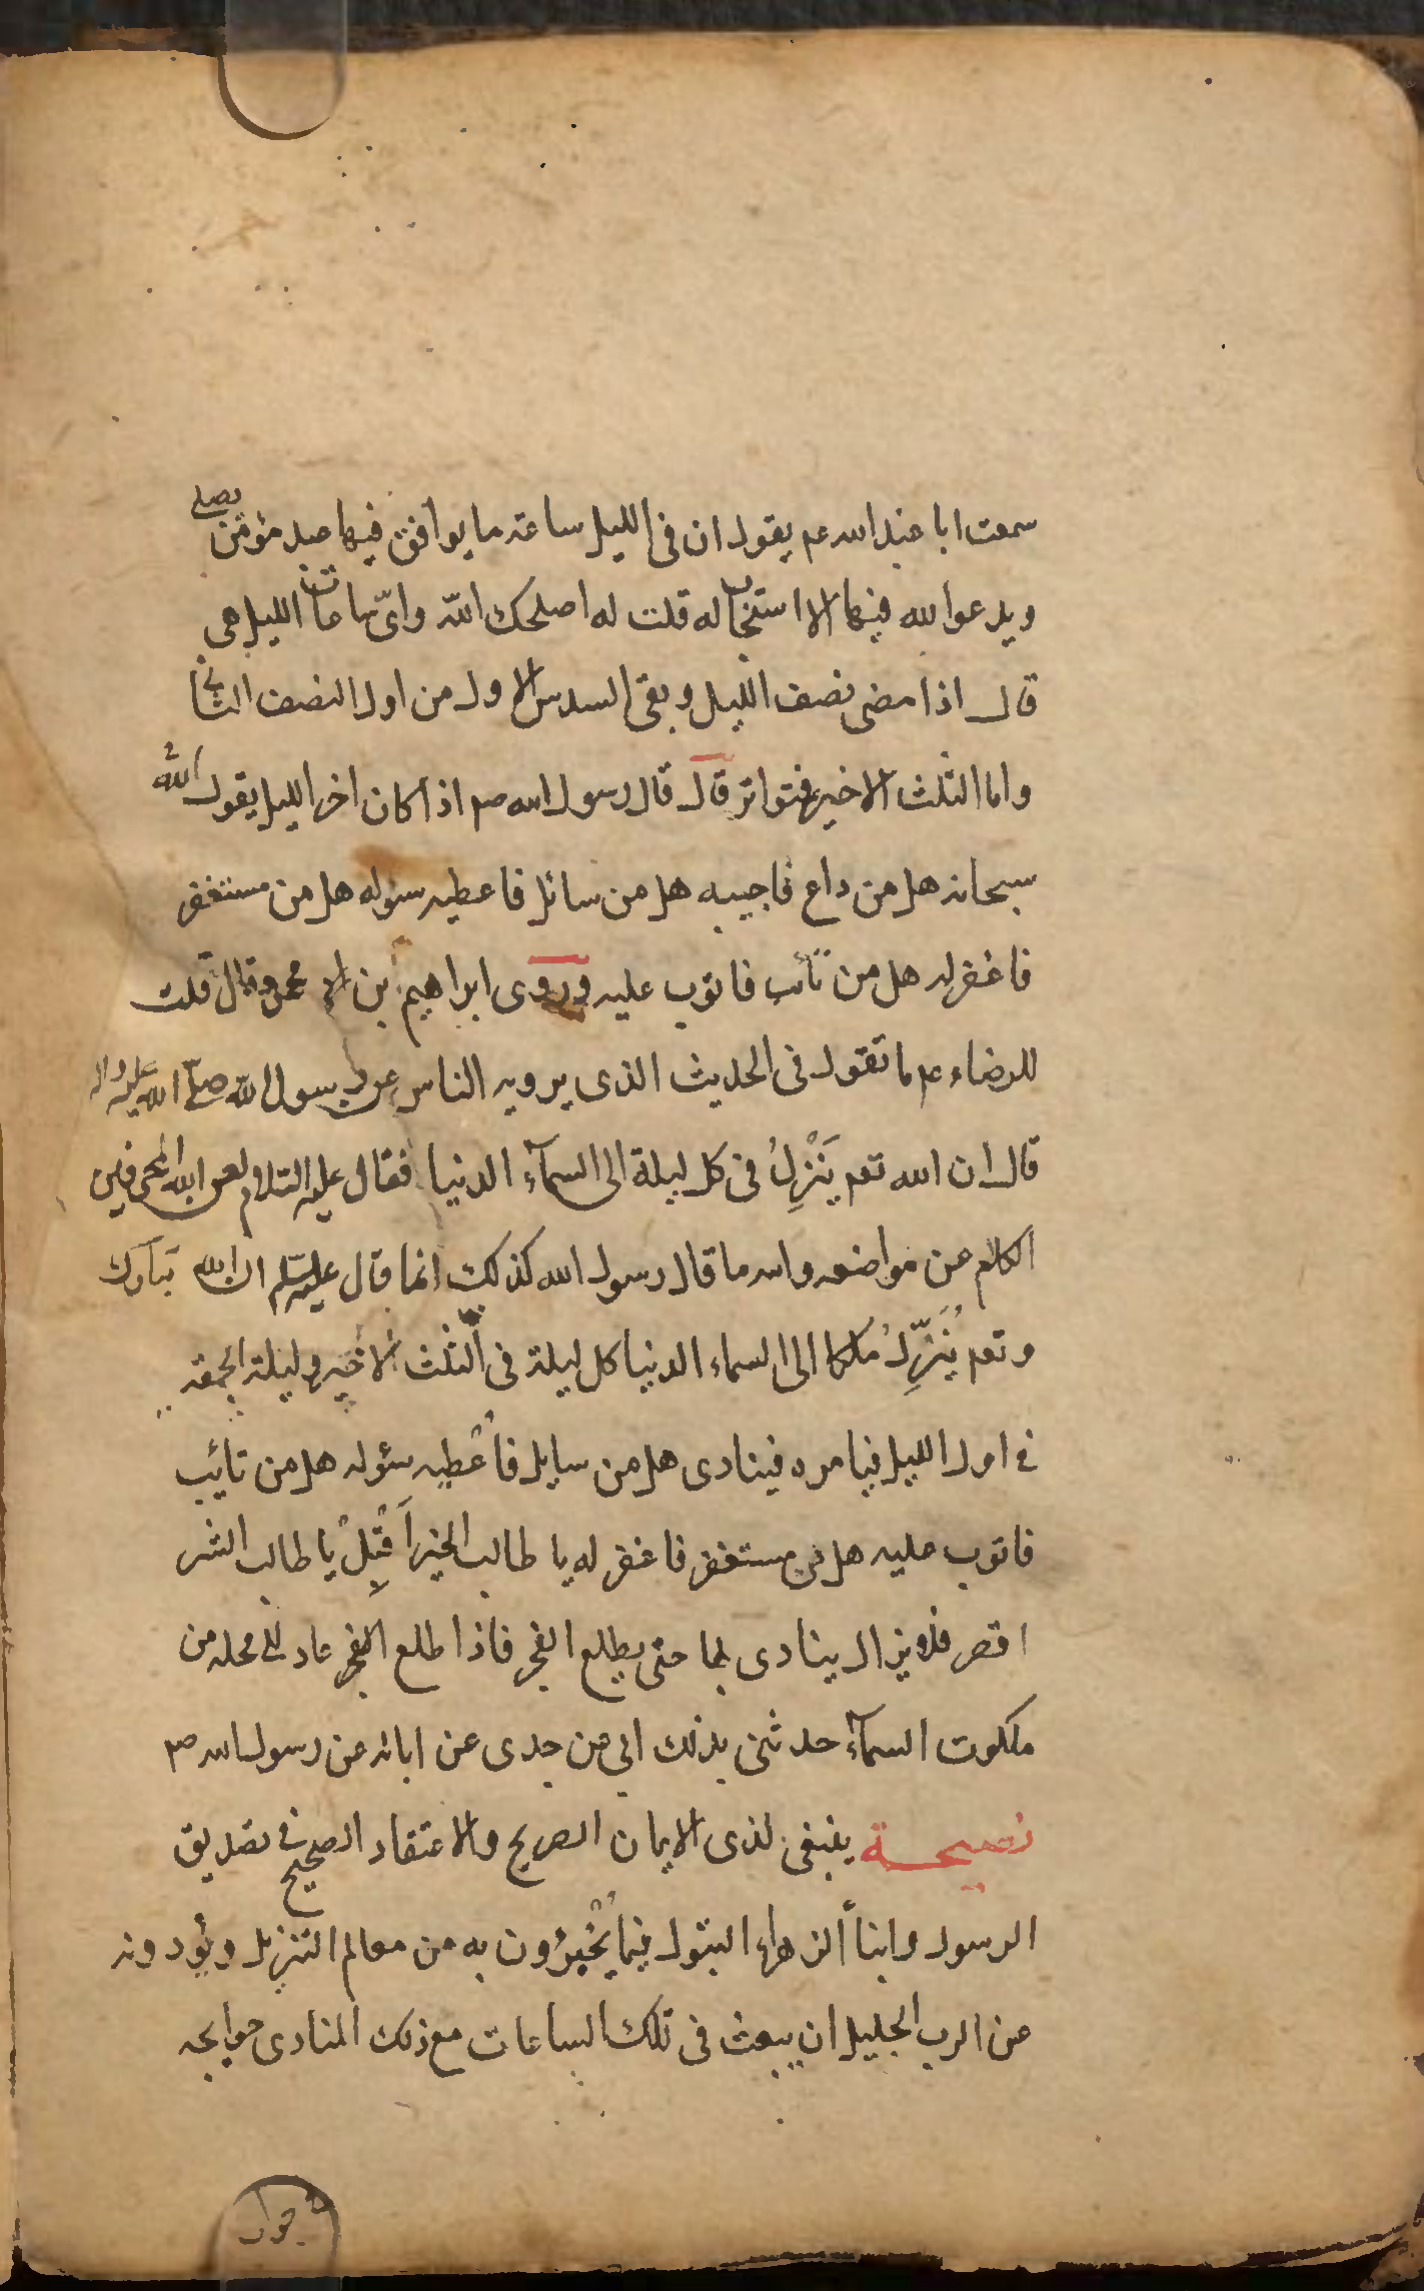 سمعت ابا عبد الله عم يقول ان فى الليل ساعة ما يوافق فيها عبد مؤمن يصلے
ويدعوا لله فيها الا استجاب له قلت له اصلحك اللّه واىّ ساعات الليل هى
قال اذا مضى نصف الليل وبقى السدس الاول من اول النصف الثانى
واما الثلث الاخير فمتواتر قال قال رسول الله صم اذا كان اخر الليل يقول اللّٰه
سبحانه هل من داع فاجيبه هل من سائل فاعطيه سؤله هل من مستغفر
فاغفر له هل من تائب فاتوب عليه وروى ابراهيم بن ابى محمود قال قلت
للرضاء عم ما تقول فى الحديث الذى يرويه الناس عن رسول اللّه صلّے الله عليه واله
قال ان الله تعم يَنْزِلُ فى كل ليلة الى السمآء الدنيا فقال عليه السّلام لعن الله المحرفين
الكلام عن مواضعه والله ما قال رسول الله كذلك انما قال عليه السّلم ان الله تبارك
وتعم يُنَزِّلُ ملكا الى السماء الدنيا كل ليلة فى الثّلث الاخير وليلة الجمعة
فى اول الليل فيامره فينادى هل من سايل فاُعْطِيه سؤله هل من تايَب
فاتوب عليه هل من مستغفر فاغفر له يا طالب الخير اَقْبِلْ يا طالب الشر
اقصر فلا يزال ينادى بها حتى يطلع الفجر فاذا طلع الفجر عاد الى محله من
ملكوت السمآء حدثنى بذلك ابى عن جدى عن ابائه عن رسول الله صم
نصيحة ينبغى لذى الايمان الصريح والاعتقاد الصحيح فى تصديق
الرسول وابناْ الزهراء البتول فيما يُخْبِرُون به من معالم التنزيل ويؤدونه
عن الرب الجليل ان يبعث فى تلك الساعات مع ذلك المنادى حوايجه